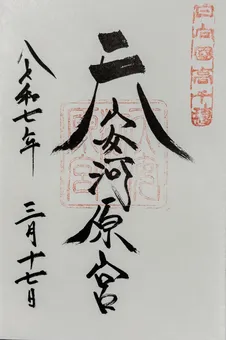 日向國高千穂
天安河原宮
令和七年 三月十七日